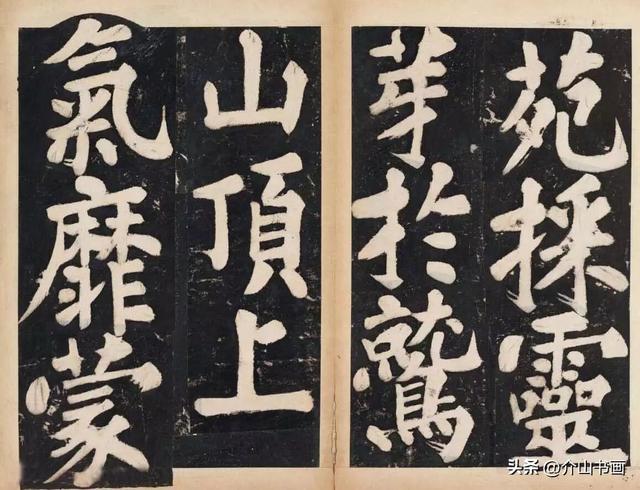 苑採靈
芽於鷲
山頂上
氣靡蒙
头条 @介山书画